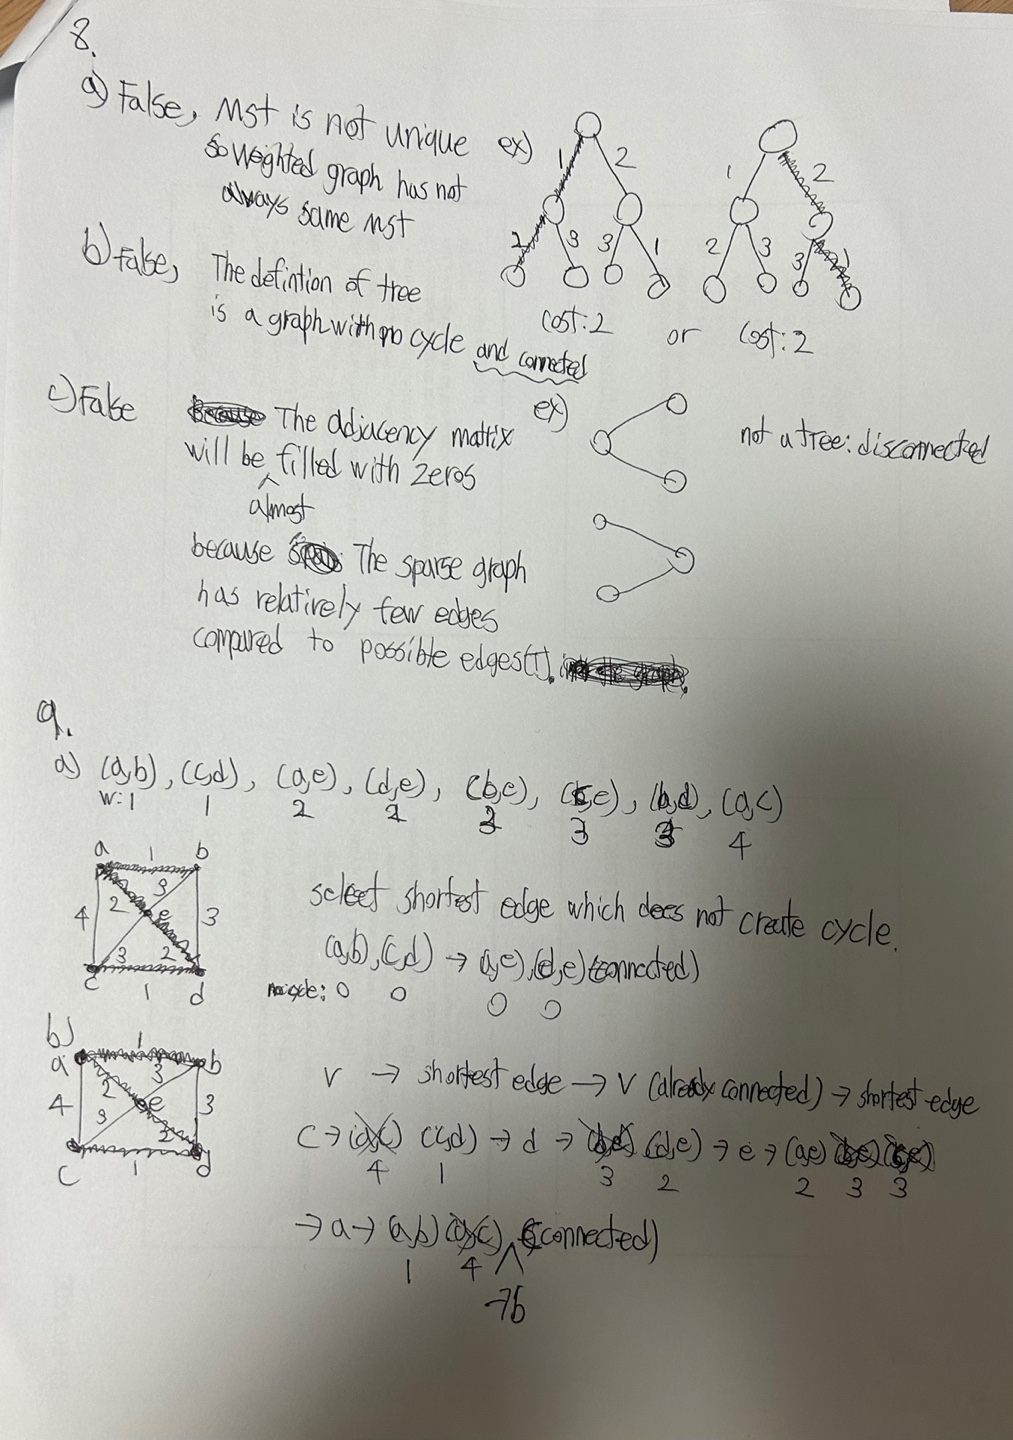 8.
a) False, Mst is not unique
so weighted graph has not
always same mst
ex)
1 2
2 3 3 1
cost:2
or
1 2
2 3 3 1
cost:2
b) False, The defintion of tree
is a graph with no cycle and connected
ex)
not a tree: disconnected
c) False
The adjacency matrix
will be almost filled with zeros
because The sparse graph
has relatively few edges
compared to possible edges(T).
9.
a) (a,b), (c,d), (a,e), (d,e), (b,e), (c,e), (b,d), (a,c)
w:1 1 2 2 3 3 3 4
a 1 b
4 2 3 e 3
3 2
c 1 d
select shortest edge which does not create cycle.
(a,b), (c,d) → (a,e), (d,e) (connected)
0 0 0 0
b)
a 1 b
4 2 3 e 3
3 2
c 1 d
v → shortest edge → v (already connected) → shortest edge
c → (a,c) (c,d) → d → (b,d) (d,e) → e → (a,e) (b,e) (c,e)
4 1 3 2 2 3 3
→ a → (a,b) (a,c) → b (connected)
1 4